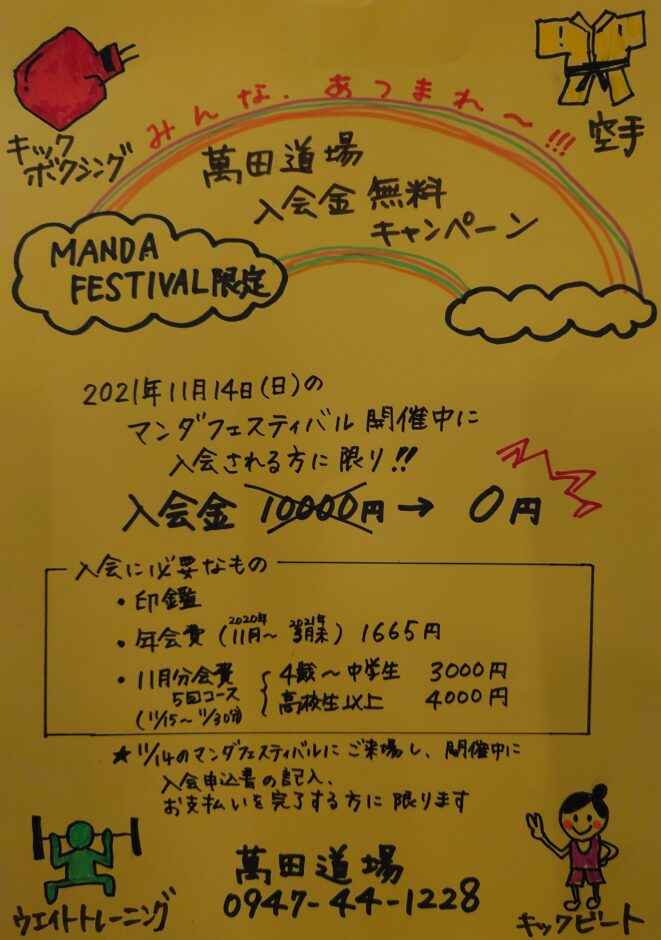 みんな、あつまれ〜!!!
キック
ボクシング
空手
萬田道場
入会金無料
キャンペーン
MANDA
FESTIVAL限定
2021年11月14日(日)の
マンダフェスティバル開催中に
入会される方に限り!!
入会金 10000円→ 0円
入会に必要なもの
・印鑑
・年会費(2020年11月〜2021年3月末) 1665円
・11月分会費
5回コース
(11/15〜11/30分)
4歳〜中学生 3000円
高校生以上 4000円
★11/14のマンダフェスティバルにご来場し、開催中に
入会申込書の記入、
お支払いを完了する方に限ります
萬田道場
0947-44-1228
ウエイトトレーニング
キックビート